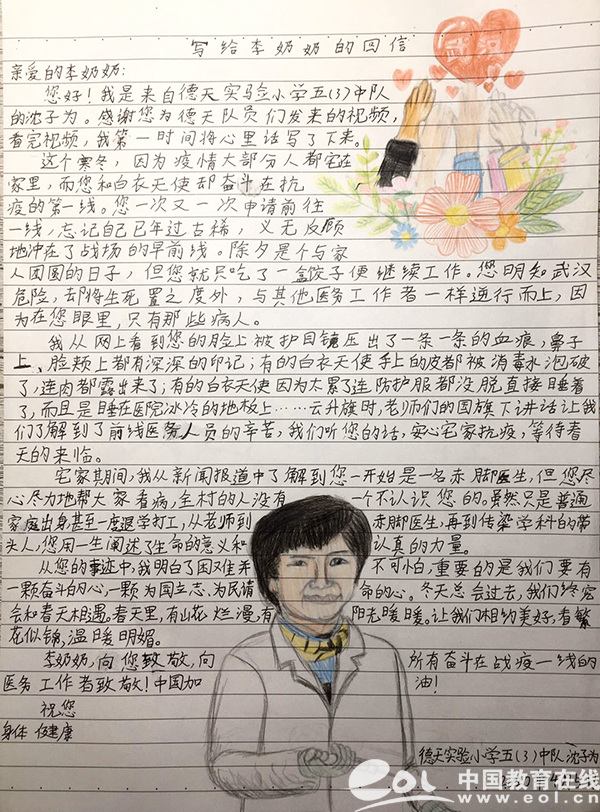 写给李奶奶的回信
武汉
亲爱的李奶奶:
您好!我是来自德天实验小学五(3)中队
的沈子为。感谢您为德天队员们发来的视频,
看完视频,我第一时间将心里话写了下来。
这个寒冬,因为疫情大部分人都宅在
家里,而您和白衣天使却奋斗在抗
疫的第一线。您一次又一次申请前往
一线,忘记自己已年过古稀,义无反顾
地冲在了战场的早前线。除夕是个与家
人团圆的日子,但您就只吃了一盒饺子便继续工作。您明知武汉
危险,却将生死置之度外,与其他医务工作者一样逆行而上,因
为在您眼里,只有那些病人。
我从网上看到您的脸上被护目镜压出了一条一条的血痕,鼻子
上、脸颊上都有深深的印记;有的白衣天使手上的皮都被消毒水泡破
了,连肉都露出来了;有的白衣天使因为太累了连防护服都没脱直接睡着
了,而且是睡在医院冰冷的地板上……云升旗时,老师们的国旗下讲话让我
们了解到了前线医务人员的辛苦,我们听您的话,安心宅家抗疫,等待春
天的来临。
宅家其间,我从新闻报道中了解到您一开始是一名赤脚医生,但您尽
心尽力地帮大家看病,全村的人没有一个不认识您的。虽然只是普通
家庭出身,甚至一度退学打工,从老师到赤脚医生,再到传染学科的带
头人,您用一生阐述了生命的意义和认真的力量。
从您的事迹中,我明白了困难并不可怕,重要的是我们要有
一颗奋斗的心,一颗为国立志、为民请命的心。冬天总会过去,我们终究
会和春天相遇。春天里,有山花烂漫,有阳光暖暖。让我们相约美好,看繁
花似锦,温暖明媚。
李奶奶,向您致敬,向所有奋斗在战疫一线的
医务工作者致敬!中国加油!
祝您
身体健康
德天实验小学五(3)中队 沈子为
eol 中国教育在线
www.eol.cn